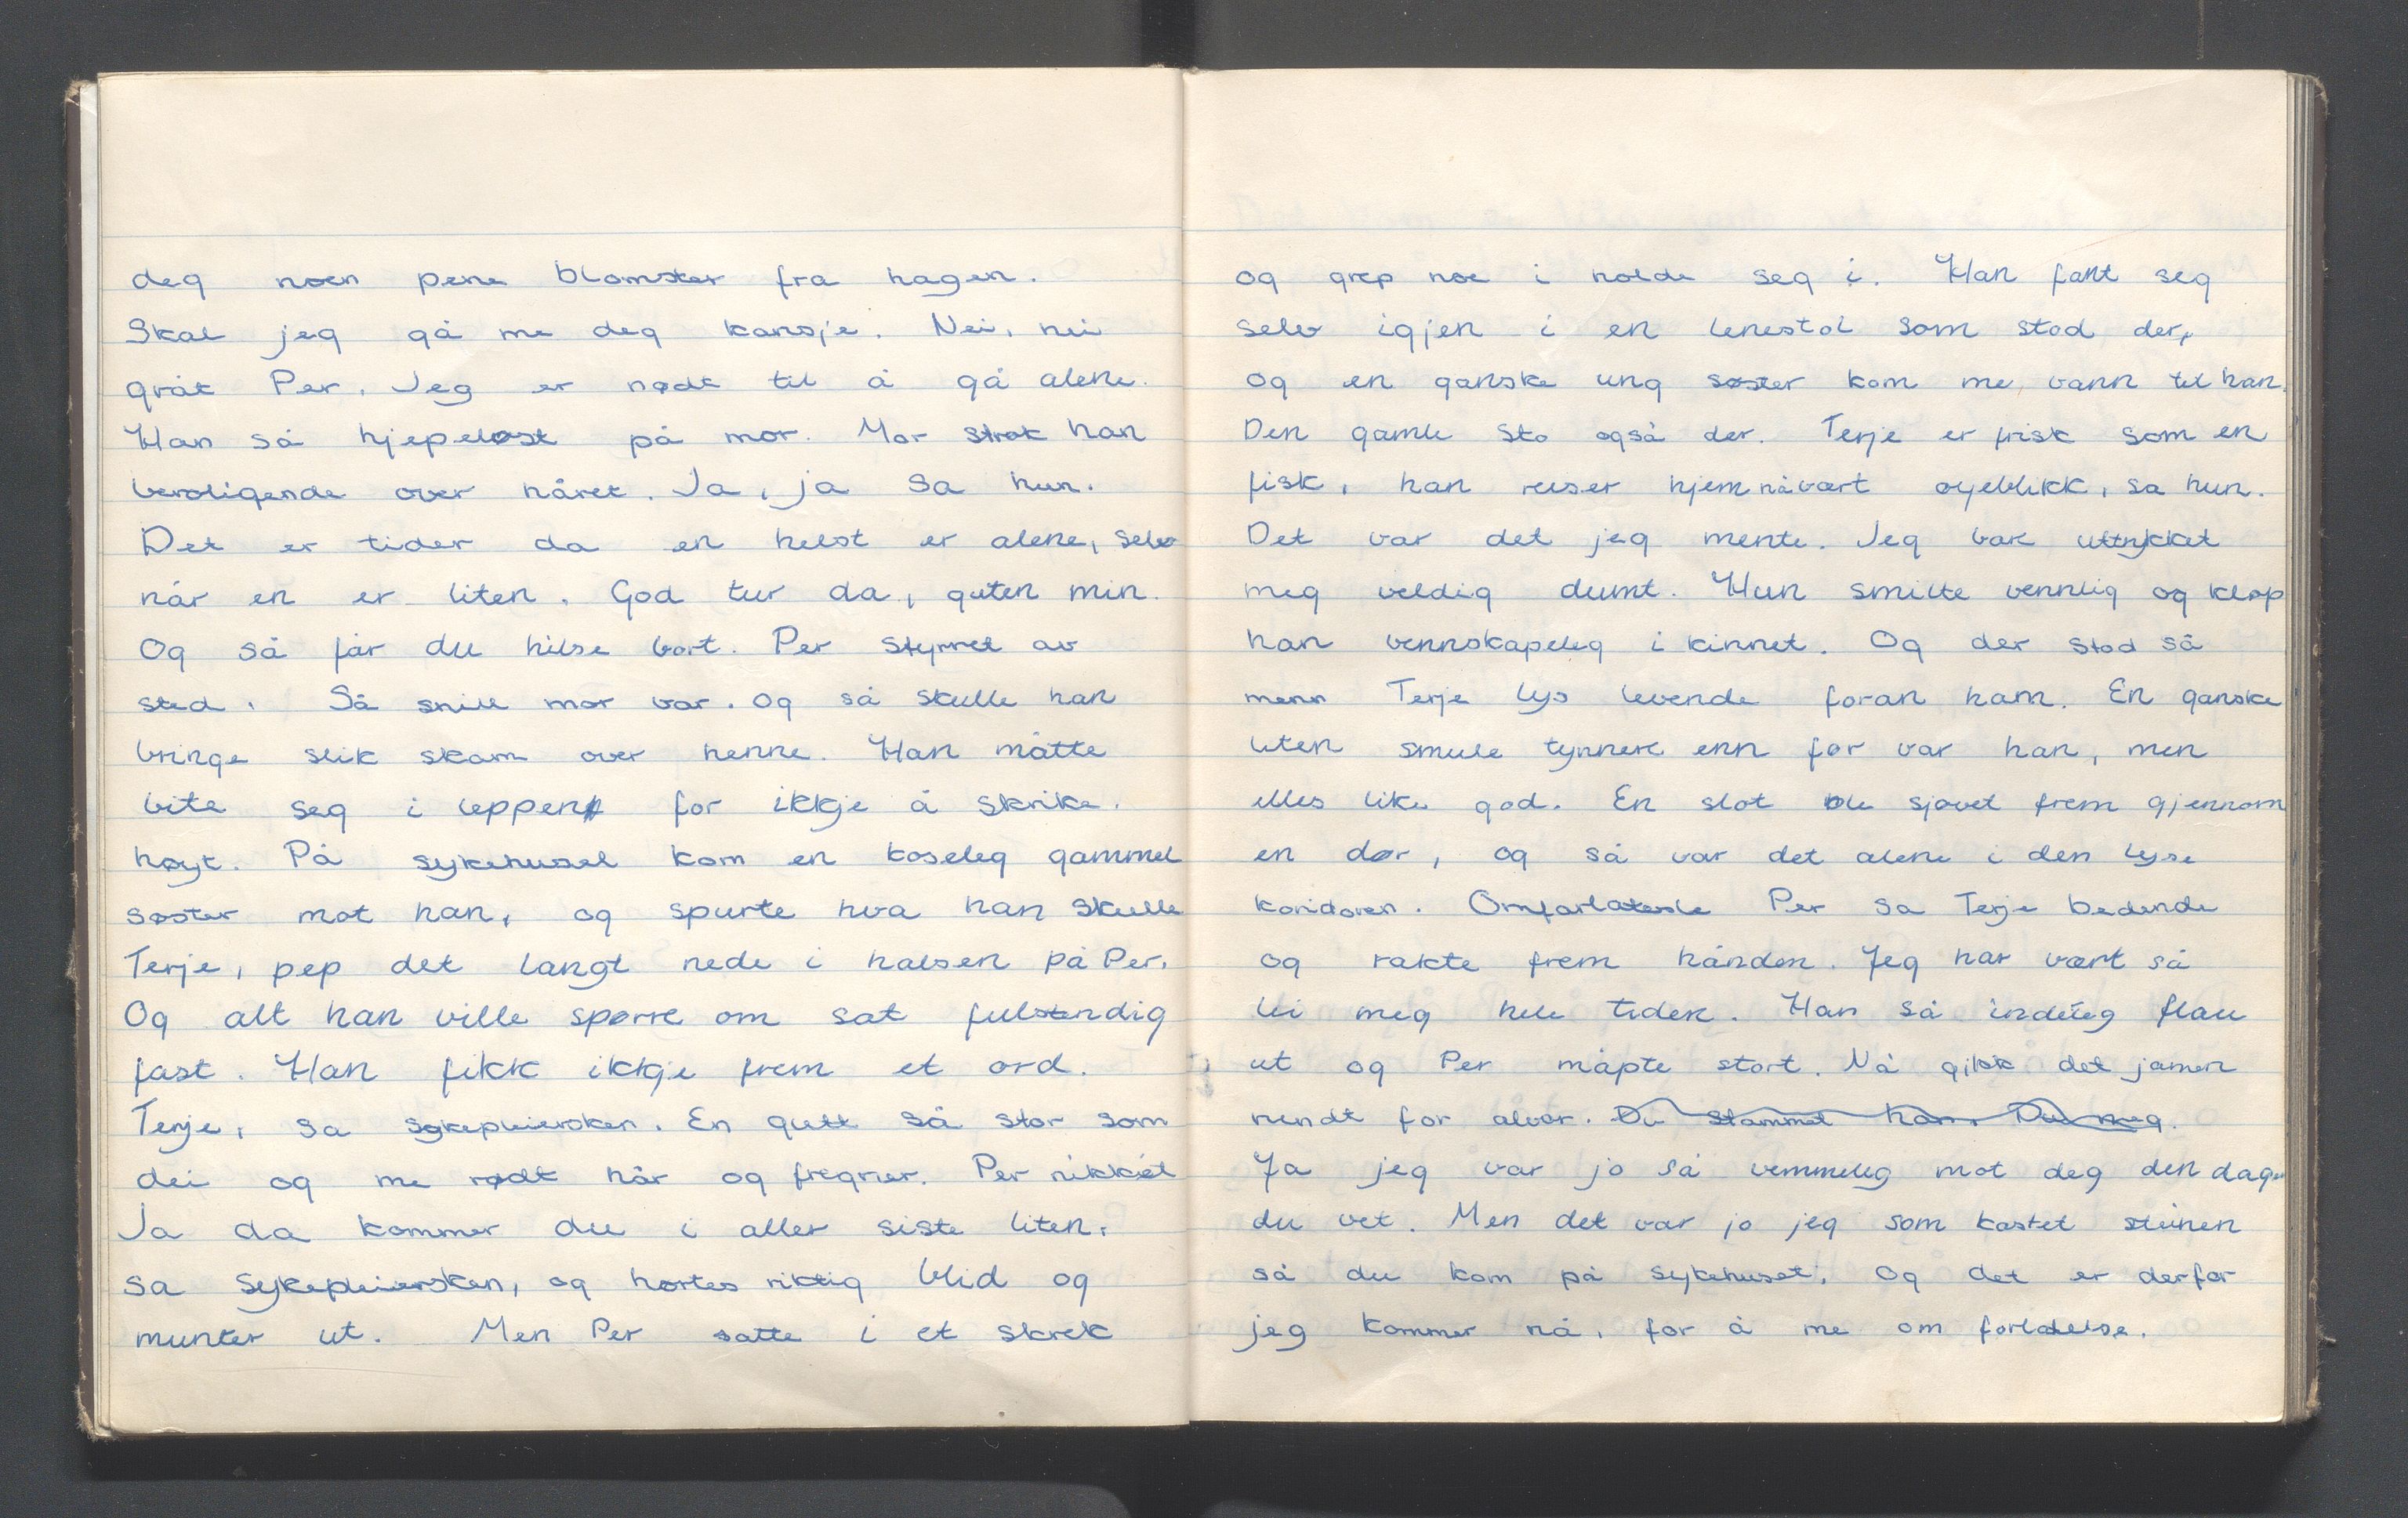 deg noen pene blomster fra hagen.
Skal jeg gå me deg kansje. Nei, nei
gråt Per. Jeg er nødt til å gå alene.
Han så hjepeløst på mor. Mor strøk han
beroligende over håret. Ja, ja sa hun.
Det er tider da en helst er alene, selv
når en er liten. God tur da, guten min.
Og så får du hilse bort. Per styrret av
sted. Så snill mor var. og så skulle han
bringe slik skam over henne. Han måtte
bite seg i leppen for ikkje å skrike.
høyt. På sykehusel kom en koseleg gammel
søster mot han, og spurte hva han skulle
Terje, pep det langt nede i halsen på Per.
Og alt han ville spørre om sat fulstendig
fast. Han fikk ikkje frem et ord.
Terje, sa sykepleiersken. En gutt så stor som
dei og me rødt hår og fregner. Per nikket
Ja da kommer du i aller siste liten.
sa sykepleiersken, og hørtes riktig blid og
munter ut. Men Per satte i et skrek
og grep noe i holde seg i. Han fant seg
selv igjen i en lenestol som stod der,
og en ganske ung søster kom me vann til han.
Den gamle sto også der. Terje er frisk som en
fisk, han reiser hjem nåvært øyeblikk, sa hun.
Det var det jeg mente. Jeg bar uttrykket
meg veldig dumt. Hun smilte vennlig og kløp
han vennskapeleg i kinnet. Og der stod så
menn Terje lys levende foran ham. En ganske
liten smule tynnere enn før var han, men
elles like god. En slot ble sjøvet frem gjennom
en dør, og så var det alene i den lyse
koridoren. Omforlatesle Per sa Terje bedende
og rakte frem hånden. Jeg har vært så
lei meg hele tiden. Han så indeleg flau
ut og Per måpte stort. Nå gikk det jamen
rundt for alvor. Du stammet han. Du meg.
Ja jeg var jo så vemmeleg mot deg den dagen
du vet. Men det var jo jeg som kastet steinen
så du kom på sykehuset. Og det er derfor
jeg kommer nå, for å me om forlatelse.